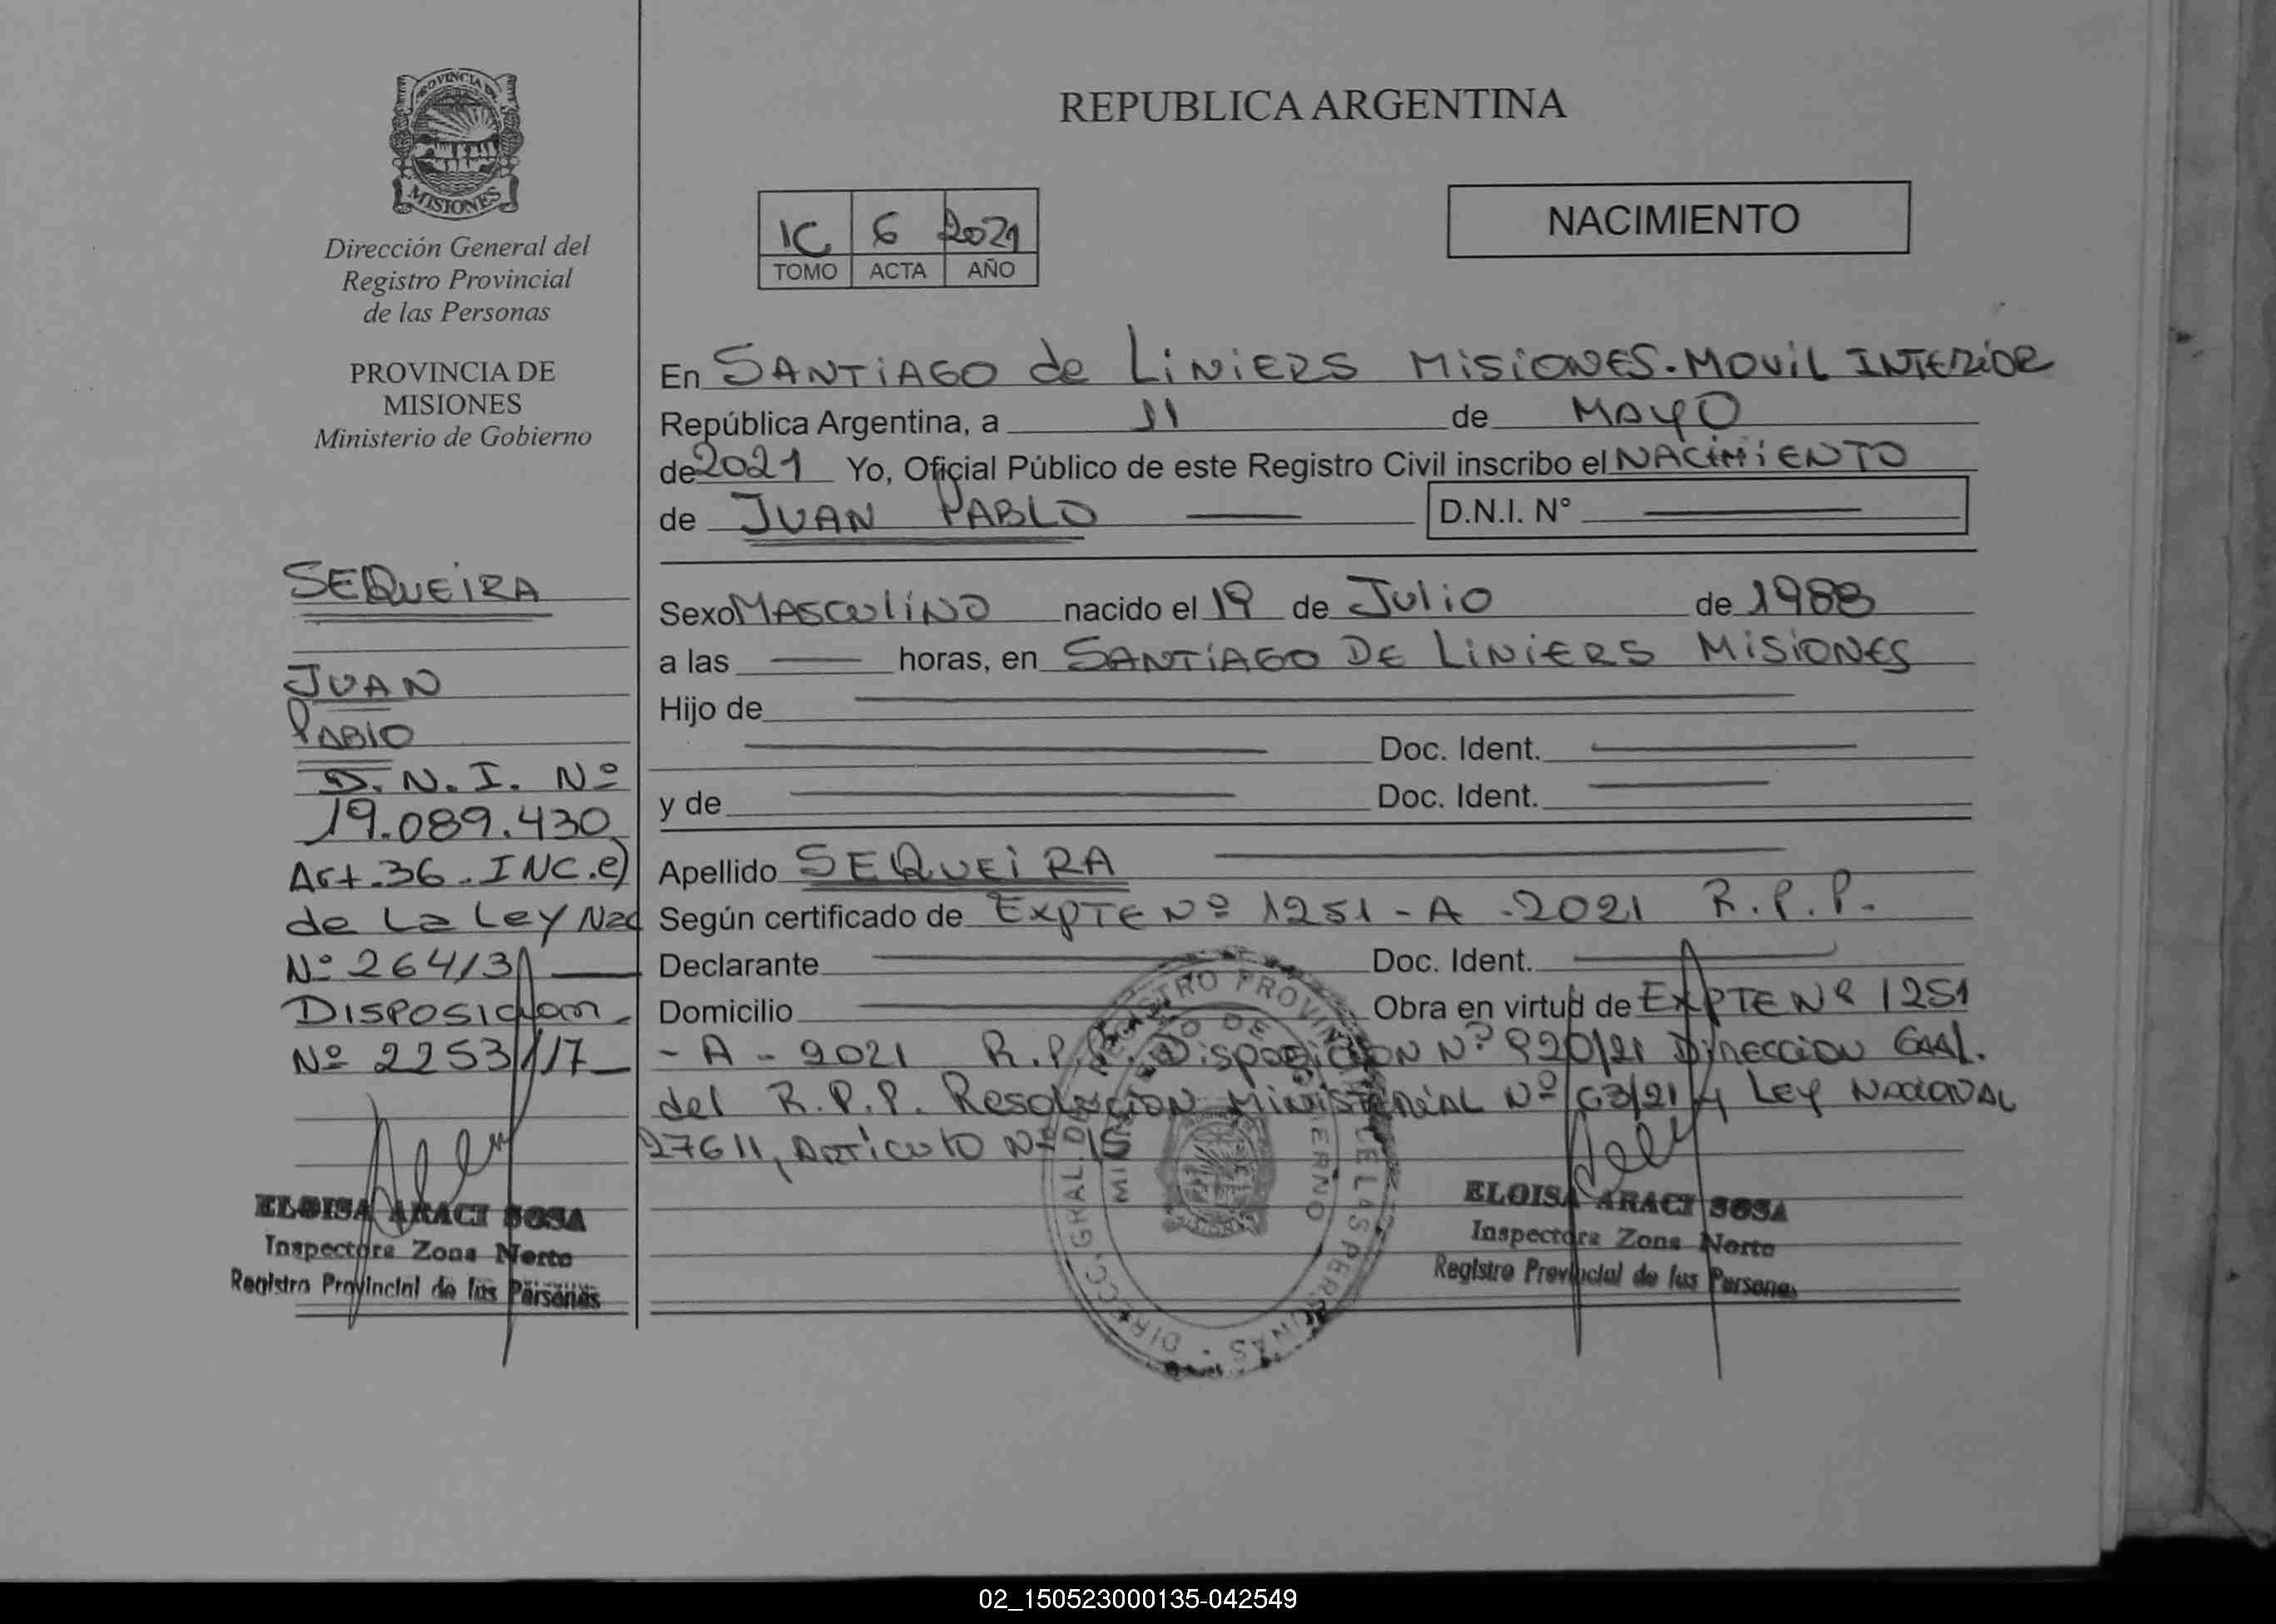 PROVINCIA DE
MISIONES
Dirección General del
Registro Provincial
de las Personas
PROVINCIA DE
MISIONES
Ministerio de Gobierno
SEQUEIRA
JUAN
PABLO
D.N.I. Nº
19.089.430
Art.36.INC.e)
de La Ley Nac
Nº 26413
DISPOSICION
Nº 2253/17
ELOISA ARACI SOSA
Inspectora Zona Norte
Registro Provincial de las Personas
REPUBLICA ARGENTINA
1C 6 2021
TOMO ACTA AÑO
NACIMIENTO
En SANTIAGO de LINIERS MISIONES.MOVIL INTERIOR
República Argentina, a 11 de MAYO
de 2021 Yo, Oficial Público de este Registro Civil inscribo el NACIMIENTO
de JUAN PABLO D.N.I. N°
Sexo MASCULINO nacido el 19 de Julio de 1988
a las horas, en SANTIAGO DE LINIERS MISIONES
Hijo de
Doc. Ident.
y de Doc. Ident.
Apellido SEQUEIRA
Según certificado de EXPTE Nº 1251-A-2021 R.P.P.
Declarante Doc. Ident.
Domicilio Obra en virtud de EXPTE Nº 1251
-A-2021 R.P.P. Disposición Nº 920/21 Dirección Gral.
del R.P.P. Resolución Ministerial Nº 63/21 y Ley Nacional
27611, Artículo Nº 15
DIRECC. GRAL. DEL REGISTRO PROVINCIAL DE LAS PERSONAS
MINISTERIO DE GOBIERNO
ELOISA ARACI SOSA
Inspectora Zona Norte
Registro Provincial de las Personas
02_150523000135-042549